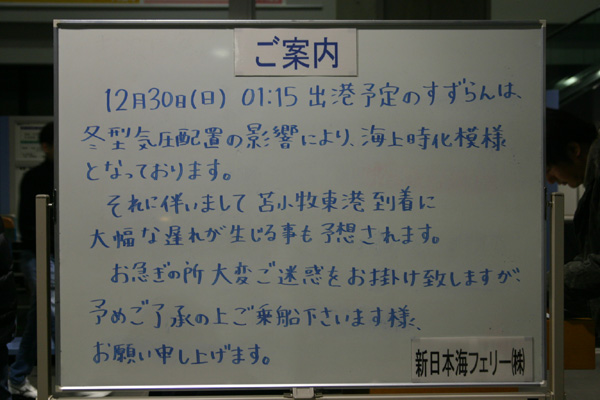 ご案内
12月30日(日) 01:15 出港予定のすずらんは、
冬型気圧配置の影響により、海上時化模様
となっております。
それに伴いまして 苫小牧東港到着に
大幅な遅れが生じる事も予想されます。
お急ぎの所 大変ご迷惑をお掛け致しますが、
予めご了承の上ご乗船下さいます様、
お願い申し上げます。
新日本海フェリー㈱